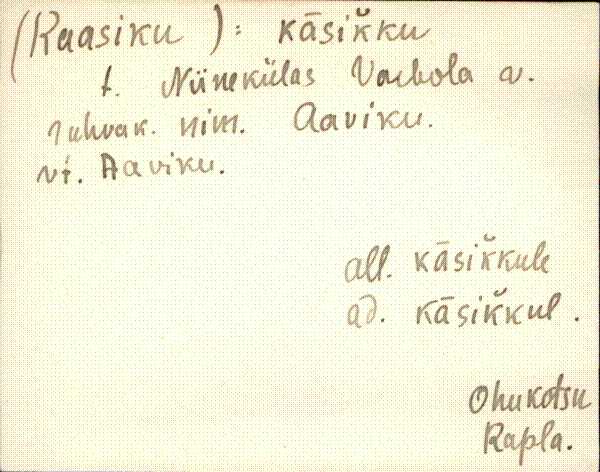 (Raasiku): kāsik̆ku
t. Niinekülas Varbola v.
rahvak. nim. Aaviku.
vt. Aaviku.
all. kāsik̆kule
ad. kāsik̆kul.
Ohukotsu
Rapla.